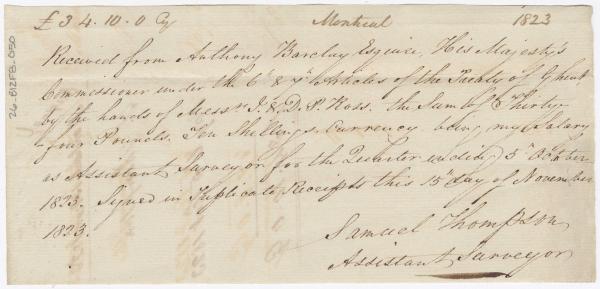 £34.10.0 Cy Montreal 1823
Received from Anthony Barclay Esquire, His Majesty's
Commissioner under the 6th & 7th Articles of the Treaty of Ghent
by the hands of Messrs J. & D. P. Ross. the Sum of Thirty-
four Pounds, Ten Shillings, Currency being my Salary
as Assistant Surveyor for the Quarter ending 5th October
1823. Signed in Triplicate Receipts this 15th day of November
1823.
Samuel Thompson
Assistant Surveyor
26-B2F8-050